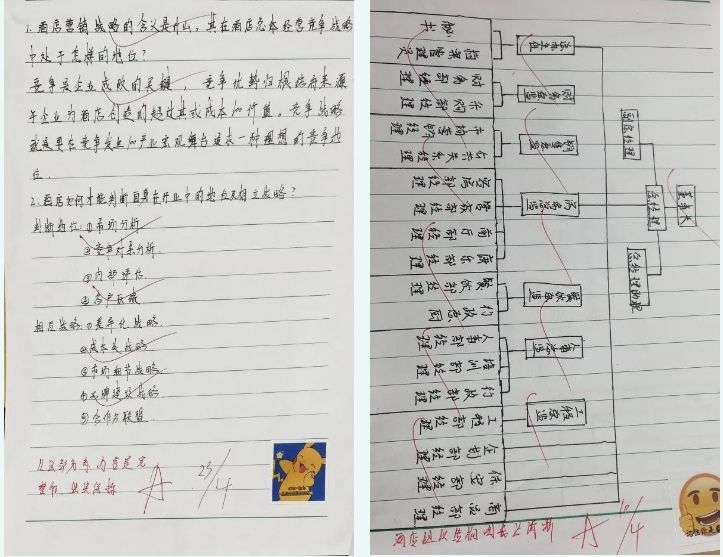 1.酒店营销战略的含义是什么,其在酒店总体经营竞争战略
中处于怎样的地位?
竞争是企业成败的关键,竞争优势归根结底来源
于企业为酒店创造的超过其成本的价值。竞争战略
就是要在竞争发生的产业宏观舞台追求一种理想的竞争地
位.
2.酒店如何才能判断自身在行业中的地位及相应战略?
判断地位:①市场分析.
②竞争对手分析.
③内部评估
④客户反馈
相应战略:①差异化战略.
②成本类战略
③市场细节战略.
④品牌建设战略
⑤合作与联盟.
内容是完
整的,继续保持
A
23/4
董事长
总经理
副总经理
总经理助理
财务总监
销售总监
房务总监
餐饮总监
人事总监
工程总监
秘书
档案管理员
财务部经理
采购部经理
市场营销部经理
公共关系部经理
客房部经理
前厅部经理
康乐部经理
餐饮部经理
行政总厨
人事部经理
培训部经理
行政部经理
工程部经理
企划部经理
保安部经理
商品部经理
酒店组织结构图表达清晰
A
10/4